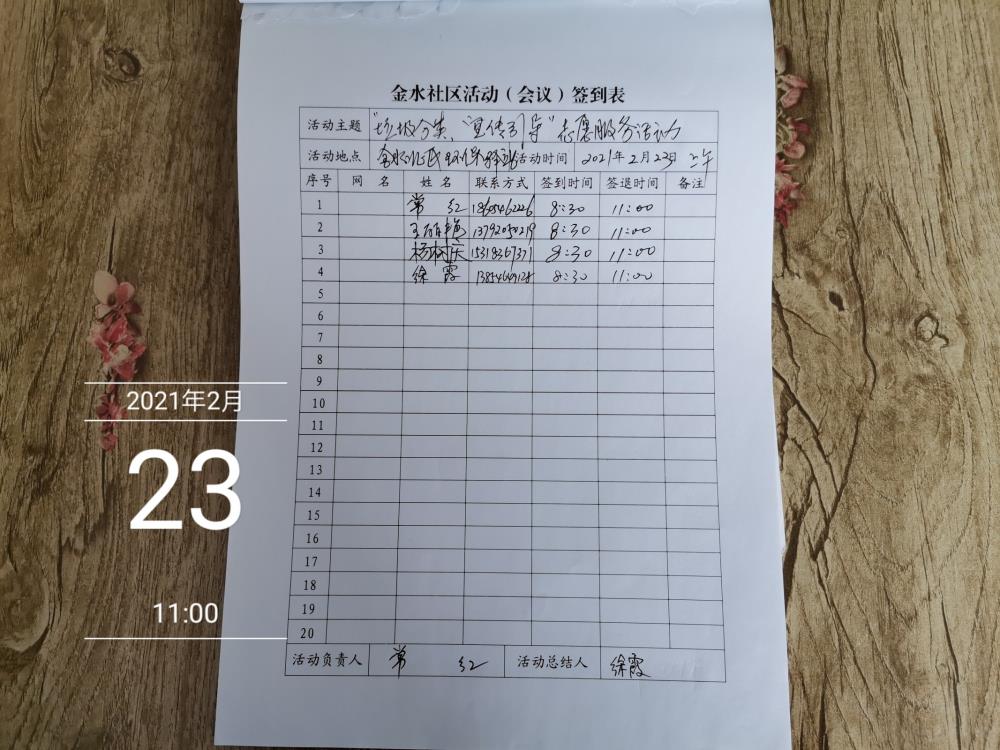 金水社区活动（会议）签到表
活动主题 "垃圾分类、"宣传引导"志愿服务活动
活动地点 金水居民环保驿站 活动时间 2021年2月23日 上午
序号 网名 姓名 联系方式 签到时间 签退时间 备注
1 常红 8:30 11:00
2 王丽艳 13792050219 8:30 11:00
3 杨树庆 15318367371 8:30 11:00
4 徐霞 8:30 11:00
5
6
7
8
9
10
11
12
13
14
15
16
17
18
19
20
活动负责人 常红 活动总结人 徐霞
2021年2月
23
11:00